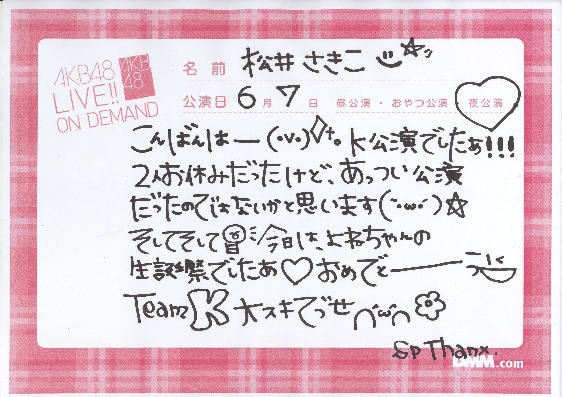 AKB48
LIVE!!
ON DEMAND
AKB
48
名前 松井さきこ
公演日 6月7日 昼公演・おやつ公演・夜公演
こんばんはー(・v・)。K公演でしたぁ!!!
2人お休みだったけど、あっつい公演
だったのではないかと思います(´・ω・`)☆
そしてそして 今日は、よねちゃんの
生誕祭でしたあ♡おめでとー
Team K 大スキでっせ
Sp Thanx.
DMM.com